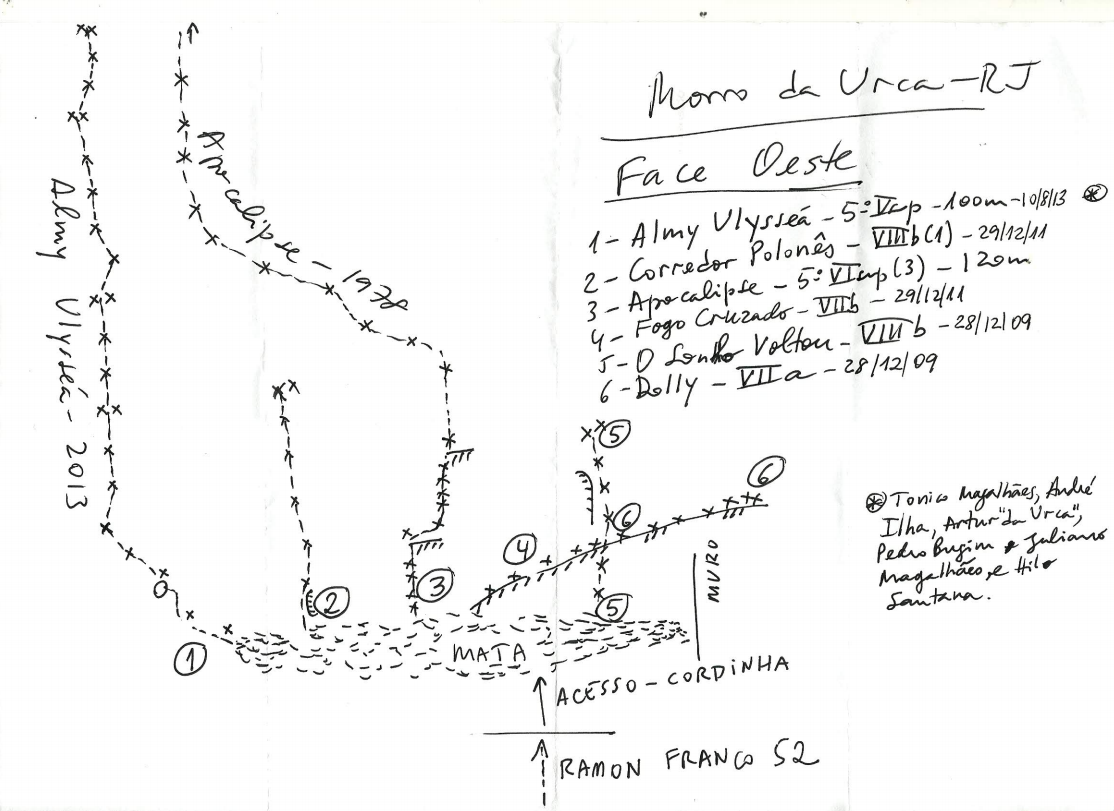 Morro da Urca - RJ
Face Oeste
1 - Almy Ulysseá - 5º Vsup - 100m - 10/8/13 *
2 - Corredor Polonês - VIIIb (1) - 29/12/11
3 - Apocalipse - 5º VIsup (3) - 120m
4 - Fogo Cruzado - VIIb - 29/12/11
5 - O Sonho Voltou - VIIIb - 28/12/09
6 - Dolly - VIIa - 28/12/09
* Tonico Magalhães, André
Ilha, Artur "da Urca",
Pedro Bugim e Juliano
Magalhães, e Hilo
Santana.
Almy Ulysseá - 2013
Apocalipse - 1978
5
6
6
4
3
2
5
1
MURO
MATA
ACESSO - CORDINHA
RAMON FRANCO 52